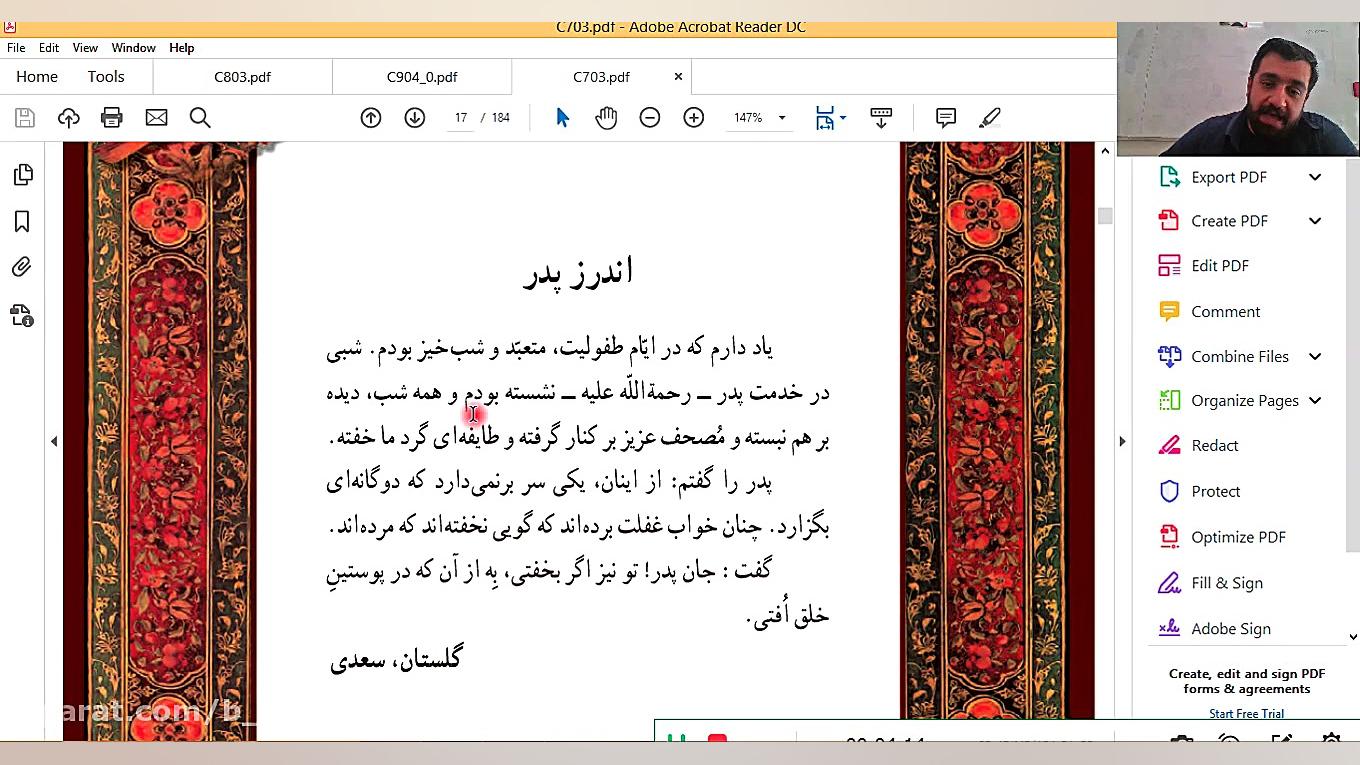 C703.pdf - Adobe Acrobat Reader DC
File Edit View Window Help
Home Tools C803.pdf C904_0.pdf C703.pdf ×
17 / 184 147%
Export PDF
Create PDF
Edit PDF
Comment
Combine Files
Organize Pages
Redact
Protect
Optimize PDF
Fill & Sign
Adobe Sign
Create, edit and sign PDF
forms & agreements
Start Free Trial
اندرز پدر
یاد دارم که در ایّام طفولیت، متعبّد و شب‌خیز بودم. شبی
در خدمت پدر ــ رحمةاللّه علیه ــ نشسته بودم و همه شب، دیده
بر هم نبسته و مُصحف عزیز بر کنار گرفته و طایفه‌ای گرد ما خفته.
پدر را گفتم: از اینان، یکی سر برنمی‌دارد که دوگانه‌ای
بگزارد. چنان خواب غفلت برده‌اند که گویی نخفته‌اند که مرده‌اند.
گفت : جان پدر! تو نیز اگر بخفتی، بِه از آن که در پوستینِ
خلق اُفتی.
گلستان، سعدی
arat.com/b_